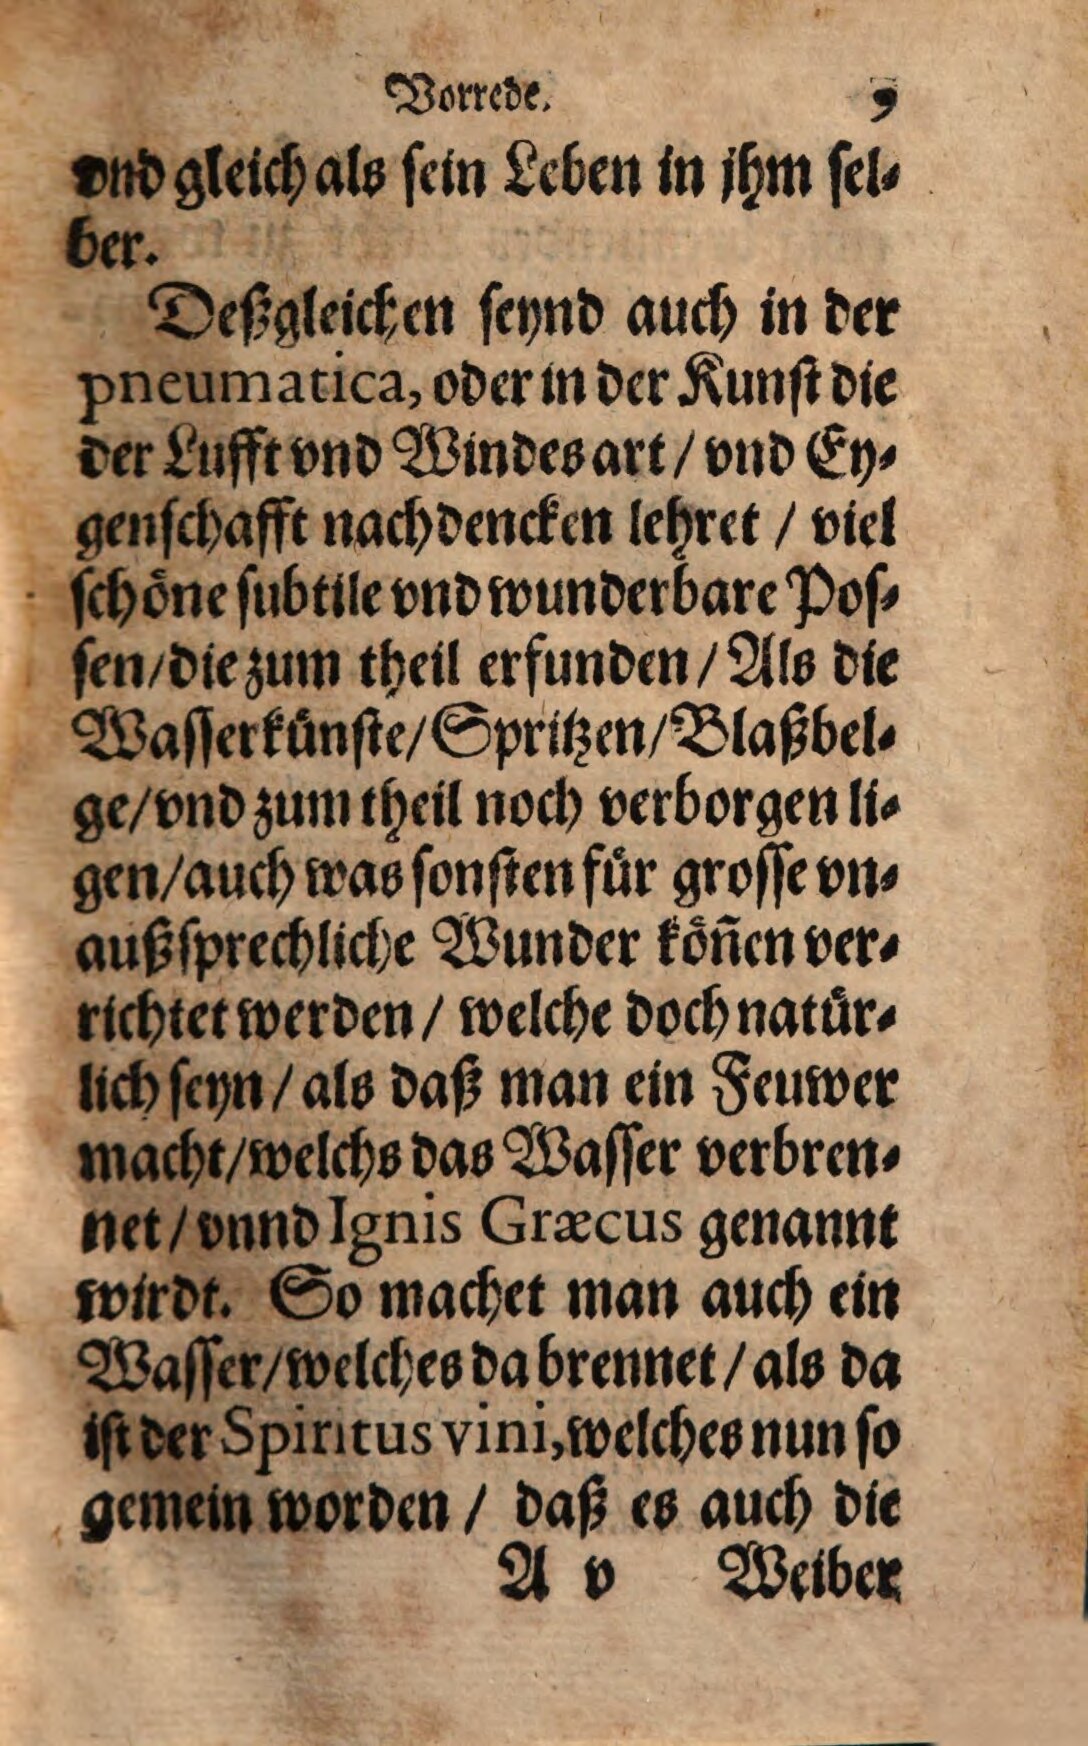 Vorrede. 9
vnd gleich als sein Leben in jhm sel-
ber.
Deßgleichen seynd auch in der
pneumatica, oder in der Kunst die
der Lufft vnd Windes art / vnd Ey-
genschafft nachdencken lehret / viel
schöne subtile vnd wunderbare Pos-
sen / die zum theil erfunden / Als die
Wasserkünste / Spritzen / Blaßbel-
ge / vnd zum theil noch verborgen li-
gen / auch was sonsten für grosse vn-
außsprechliche Wunder köñen ver-
richtet werden / welche doch natür-
lich seyn / als daß man ein Feuwer
macht / welchs das Wasser verbren-
net / vnnd Ignis Græcus genannt
wirdt. So machet man auch ein
Wasser / welches da brennet / als da
ist der Spiritus vini, welches nun so
gemein worden / daß es auch die
A v Weiber